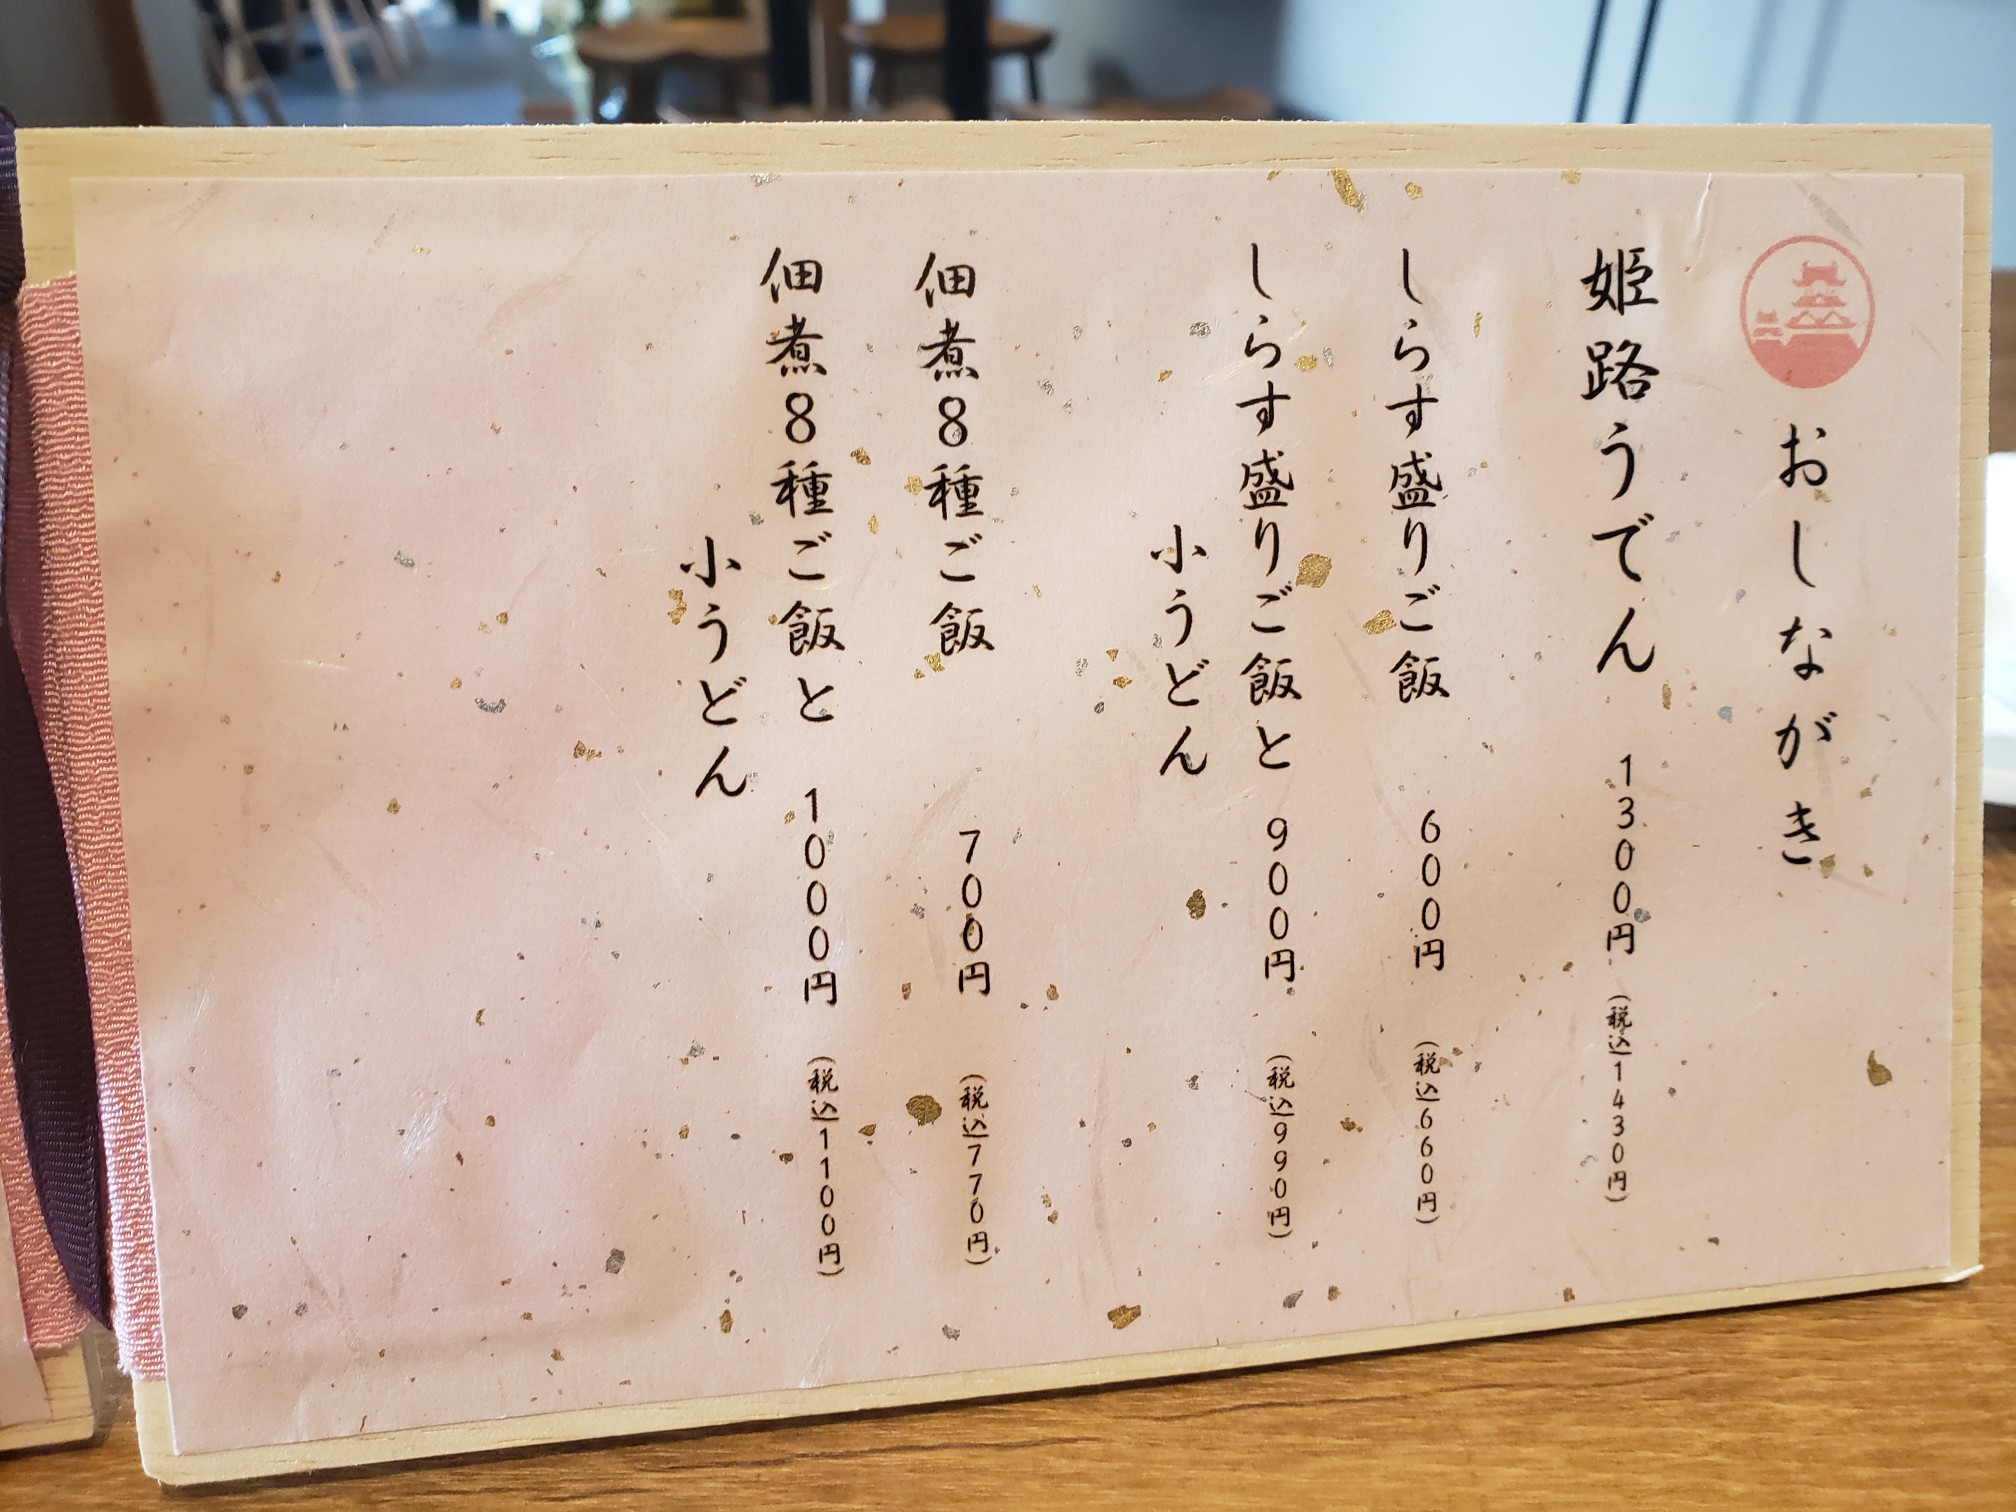 おしながき
姫路うでん 1300円 (税込1430円)
しらす盛りご飯 600円 (税込660円)
しらす盛りご飯と 900円 (税込990円)
小うどん
佃煮8種ご飯 700円 (税込770円)
佃煮8種ご飯と 1000円 (税込1100円)
小うどん